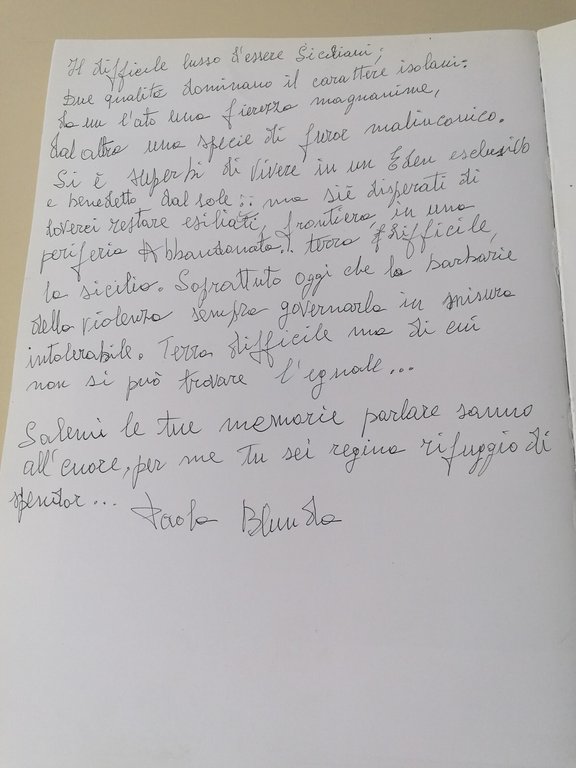 Il difficile lusso d'essere Siciliani;
Due qualità dominano il carattere isolani:
da un l'ato una fierezza magnanime,
dal altro una specie di furoe malinconico.
Si è superbi di vivere in un Eden esclusivo
e benedetto dal sole;: ma siè disperati di
doverci restare esiliati, frontiera, in una
periferia Abbandonata.. terra difficile,
la sicilia. Soprattuto oggi che la barbarie
della violenza sempra governarla in misura
intolerabile. Terra difficile ma di cui
non si può trovare l'eguale...
Salemi le tue memorie parlare sanno
all'cuore, per me tu sei regina rifuggio di
splendor...
Paola Blunda